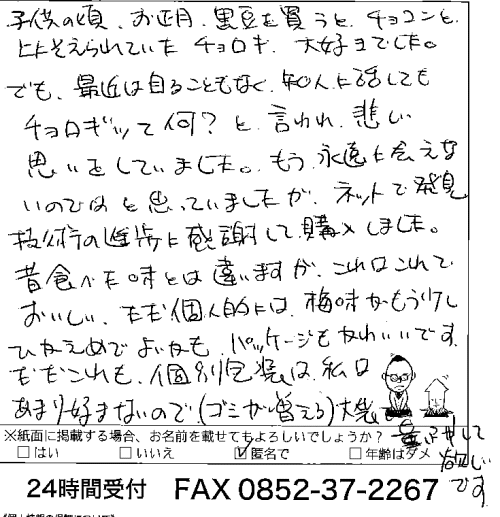 子供の頃、お正月、黒豆を買うと、チョコンと
上にそえられていた チョロギ、大好きでした。
でも、最近は目ることもなく、知人に話しても
チョロギッて何？と、言われ、悲しい
思いをしていました。もう、永遠に会えな
いのではと思っていましたが、ネットで発見
技術の進歩に感謝して購入しました。
昔食べた味とは違いますが、これはこれで
おいしい、ただ個人的には、梅味がもう少し
ひかえめでよいかも、パッケージもかわいいです。
ただこれも、個別包装は、私は
あまり好まないので(ゴミが増える)大袋
も販売して
欲しい
です
※紙面に掲載する場合、お名前を載せてもよろしいでしょうか？
□はい □いいえ ☑匿名で □年齢はダメ
24時間受付 FAX 0852-37-2267